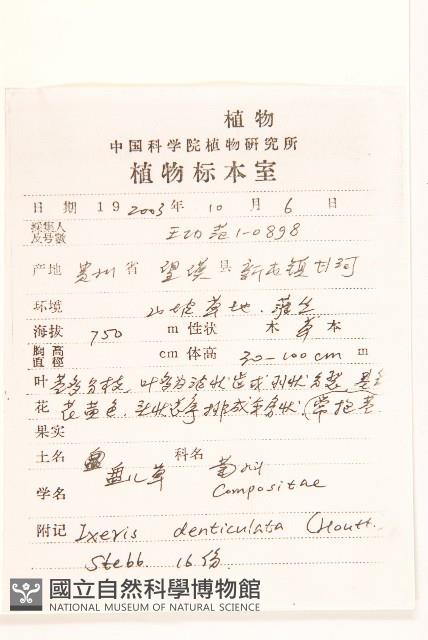 植物
中国科学院植物研究所
植物标本室
日期 19 2003年 10 月 6 日
採集人
及号數 1-0898
产地 贵州省 望谟县 新屯镇
环境 山坡草地.
海拔 750 m 性状 木 草 本
胸高
直徑 cm 体高 30-100cm m
叶 基多分枝, 叶
花 花黄色, 排成 常抱茎
果实
土名 科名 菊科
学名 Compositae
附记 Ixeris denticulata (Houtt.
Stebb. 16份
國立自然科學博物館
NATIONAL MUSEUM OF NATURAL SCIENCE